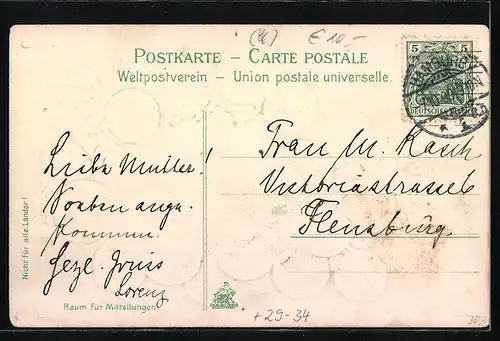 € 10,-
POSTKARTE – CARTE POSTALE
Weltpostverein – Union postale universelle.
5 5
DEUTSCHES REICH
HAMBURG
* 1
Liebe Mutter!
Soeben ange-
kommen.
Herzl. Gruss
Lorenz
Frau M. Rasch
Victoriastrasse 6
Flensburg.
Nicht für alle Länder!
Raum für Mitteilungen
+29-34